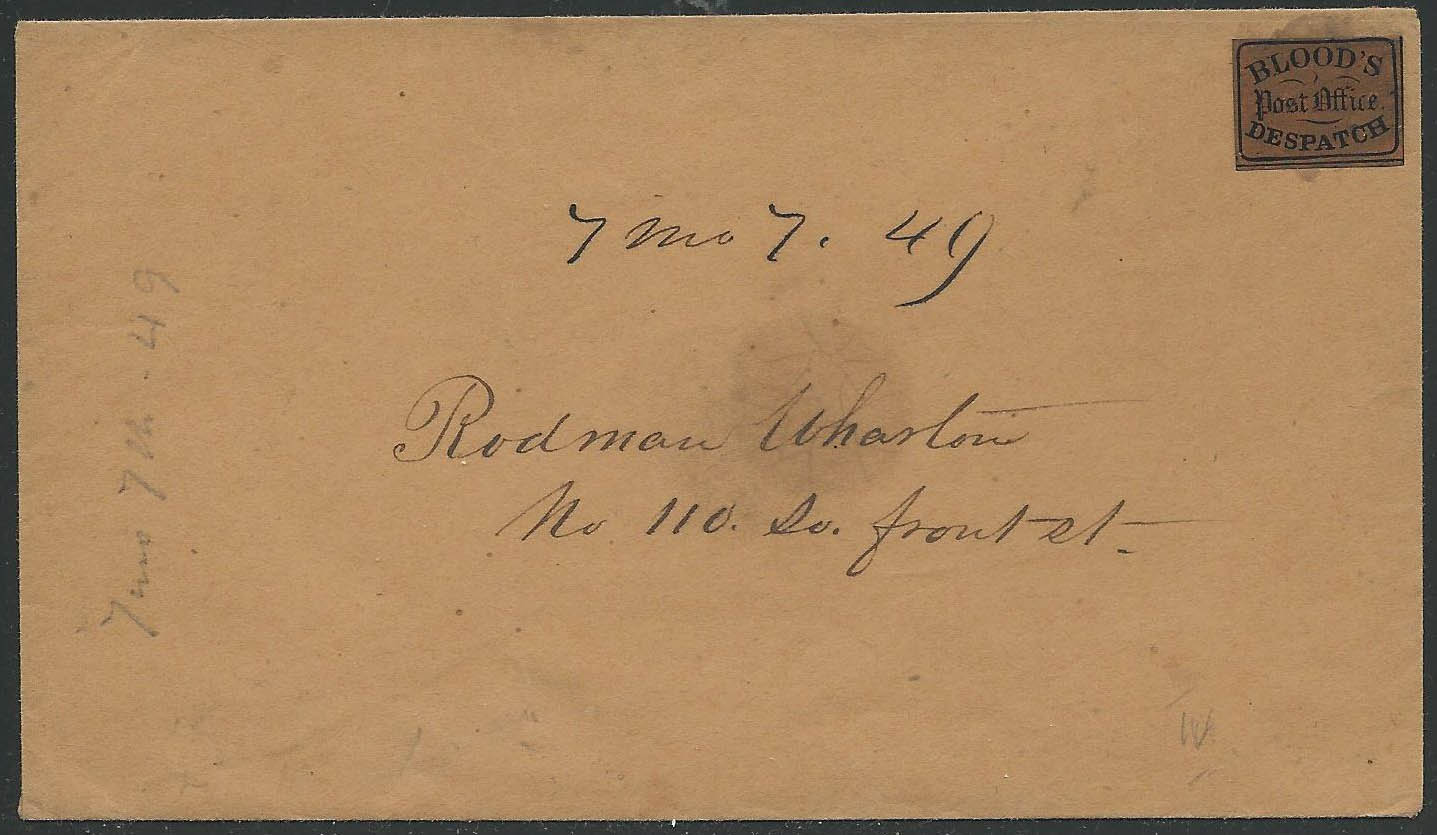 BLOOD'S
Post Office.
DESPATCH
7 mo 7. 49
Rodman Wharton
No 110. So. front st.
7 mo 7th - 49
W